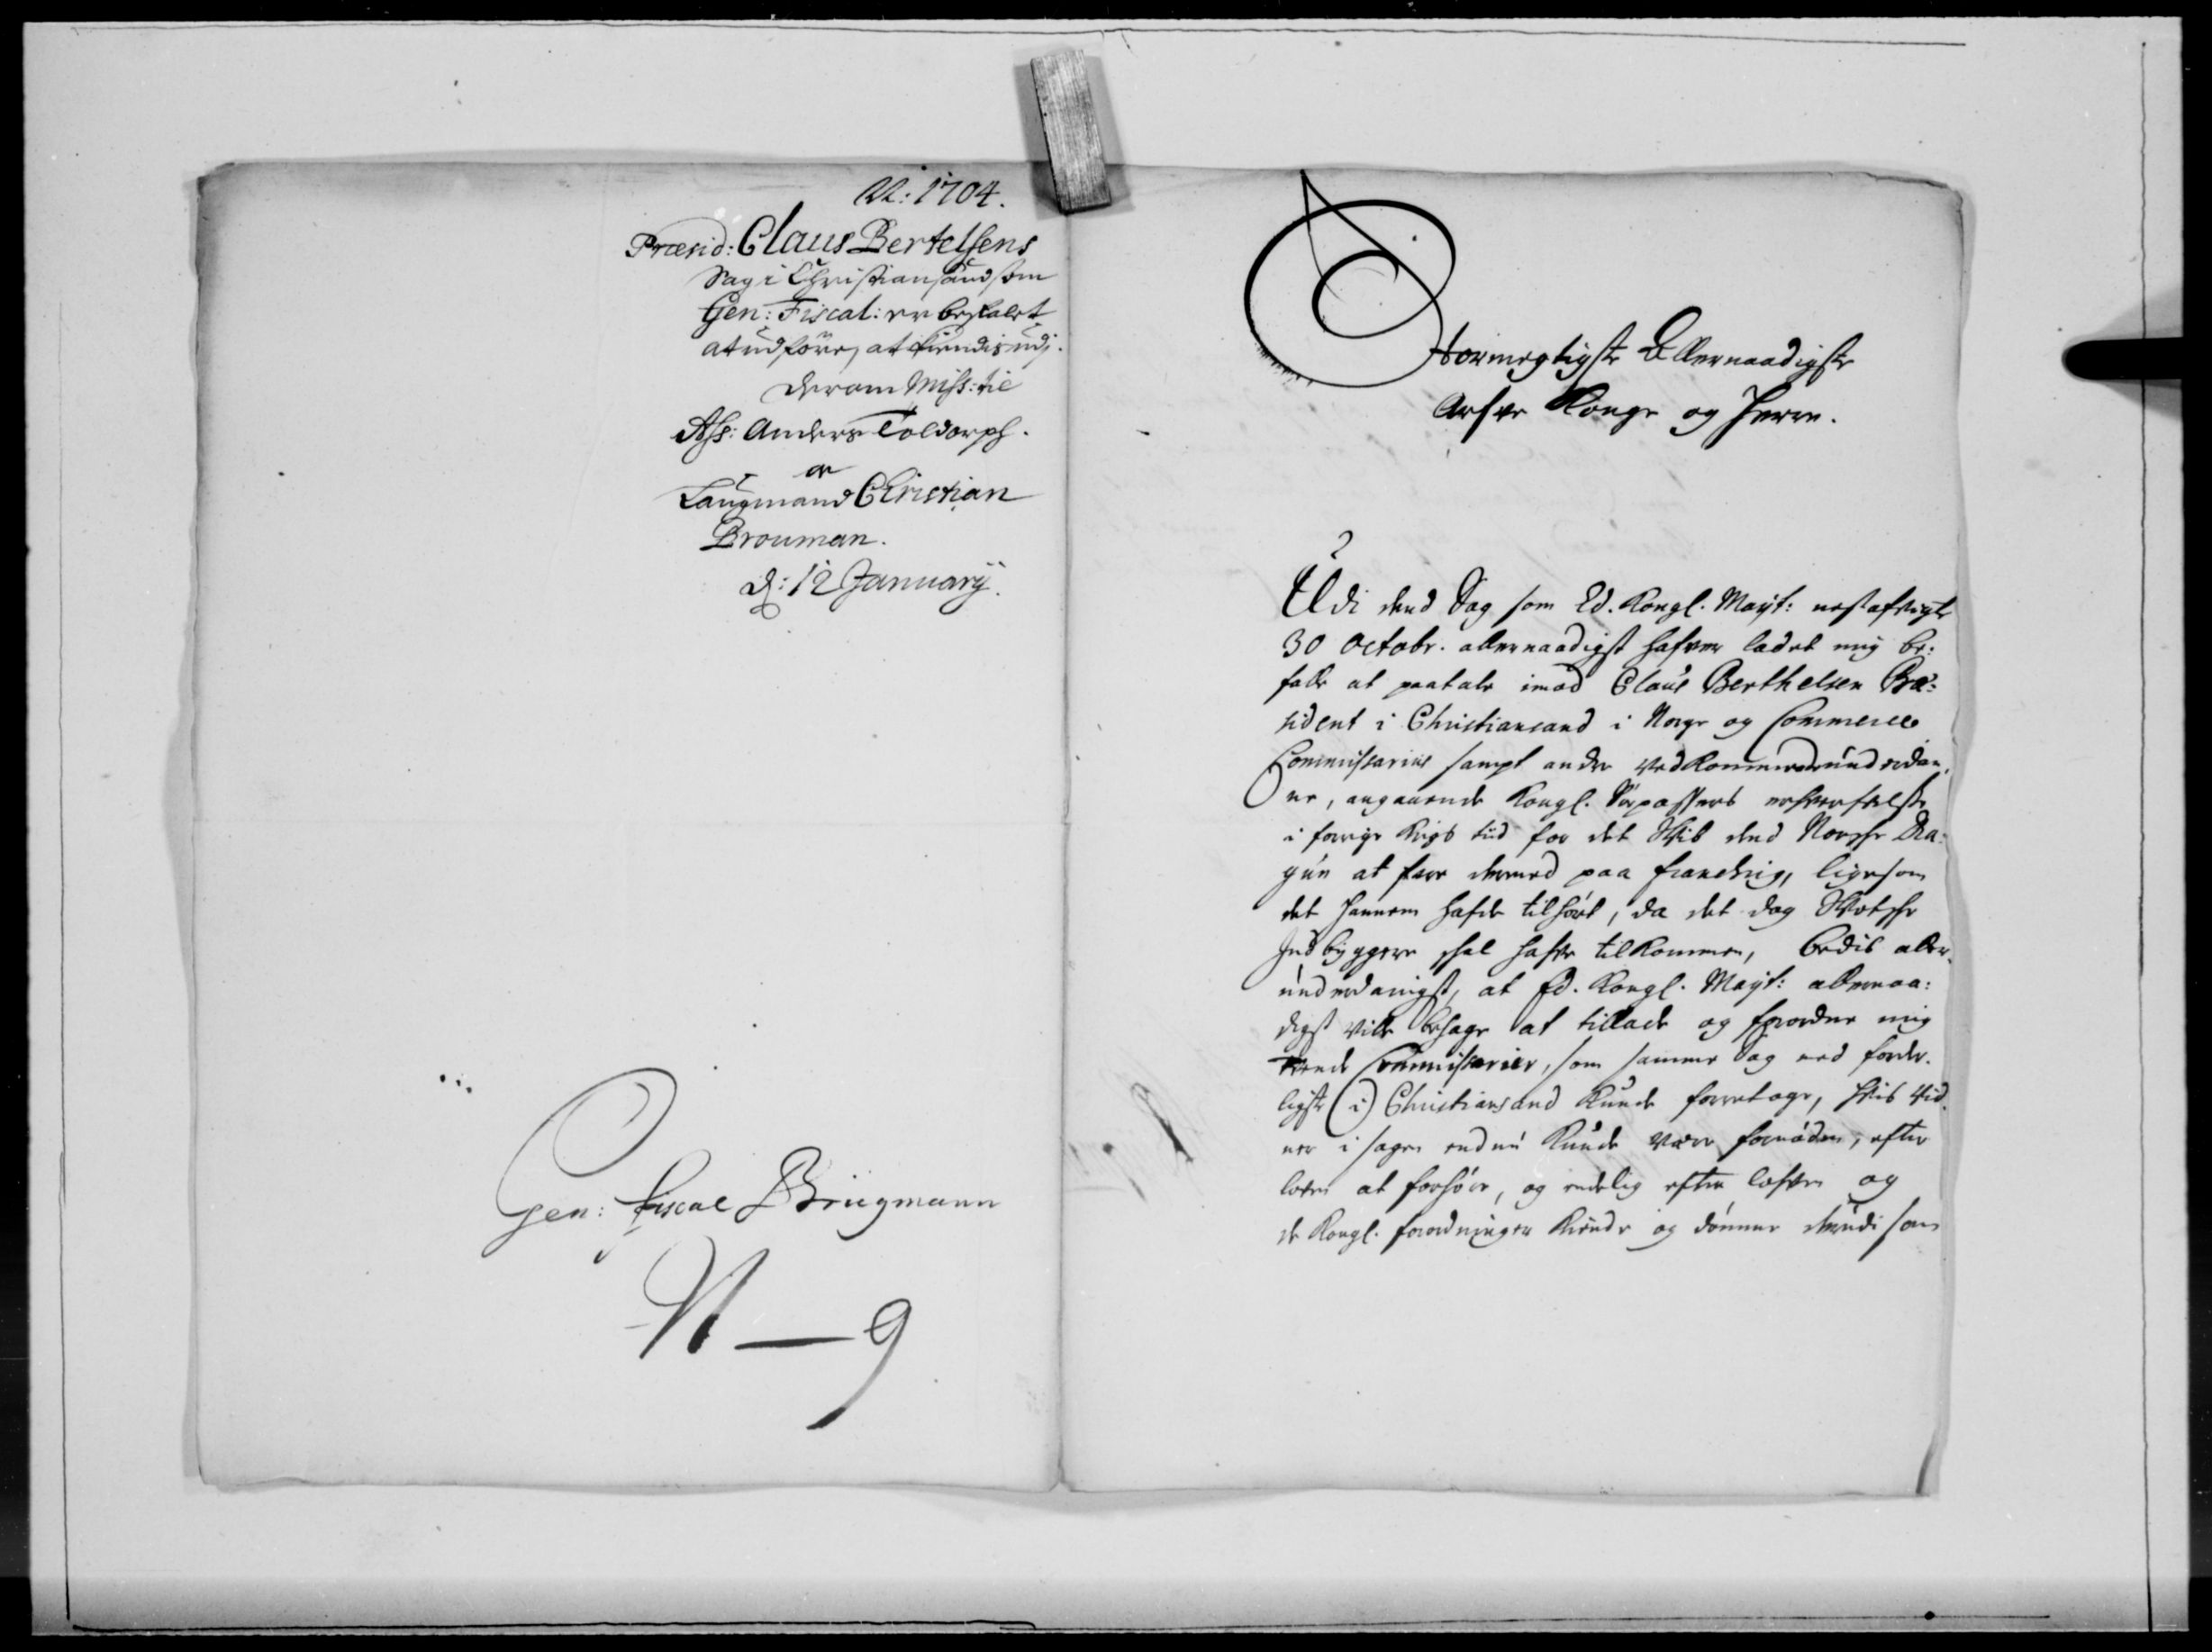 N: 1704.
Præsid: Claus Bertelsens
Sag i Christiansand som
Gen: Fiscal: er befalet
at udføre, at kiendis udj.
derom Miss: til
Ass: Anders Toldorph.
og
Laugmand Christian
Brouman.
d: 12 January.
Gen: fiscal Brügmann
N — 9
Stormegtigste Allernaadigste
Arfve Konge og Herre.
Udi dend Sag som Ed. Kongl. Mayt: nestafvigte
30 Octobr. allernaadigst hafver ladet mig be:
falle at paatale imod Claus Berthelsen Præ:
sident i Christiansand i Norge og Commerce
Commissarius sampt andre vedkommende
ne, angaaende Kongl. Søepassers erhvervelse
i forrige Krigs tiid for det Skib dend Norske Dra:
gun at fare dermed paa franchrig, ligesom
det hannem hafde tilhørt, da det dog Skotske
Indbyggere skal hafve tilkommen, bedis aller,
underdanigst, at Ed. Kongl. Mayt: allernaa:
digst ville behage at tillade og forordne mig
tvende Commissarier, som samme Sag med forder.
ligste (i) Christiansand kunde forretage, hvis vid.
ner i sagen endnu kunde være fornøden, efter
loven at forhøre, og endelig efter lofven og
de Kongl. forordninger kiende og dømme derudi som